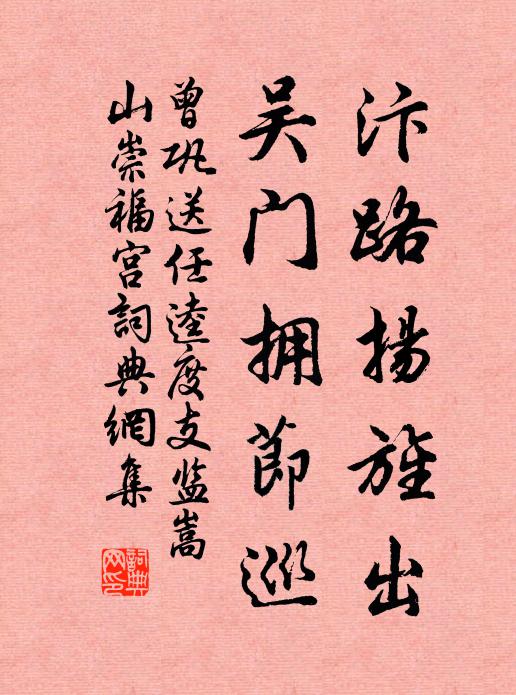 汴路揚旌出
吴门拥節巡
曾巩送任逵度支监嵩
山崇福宫詞典網集
詞典网印